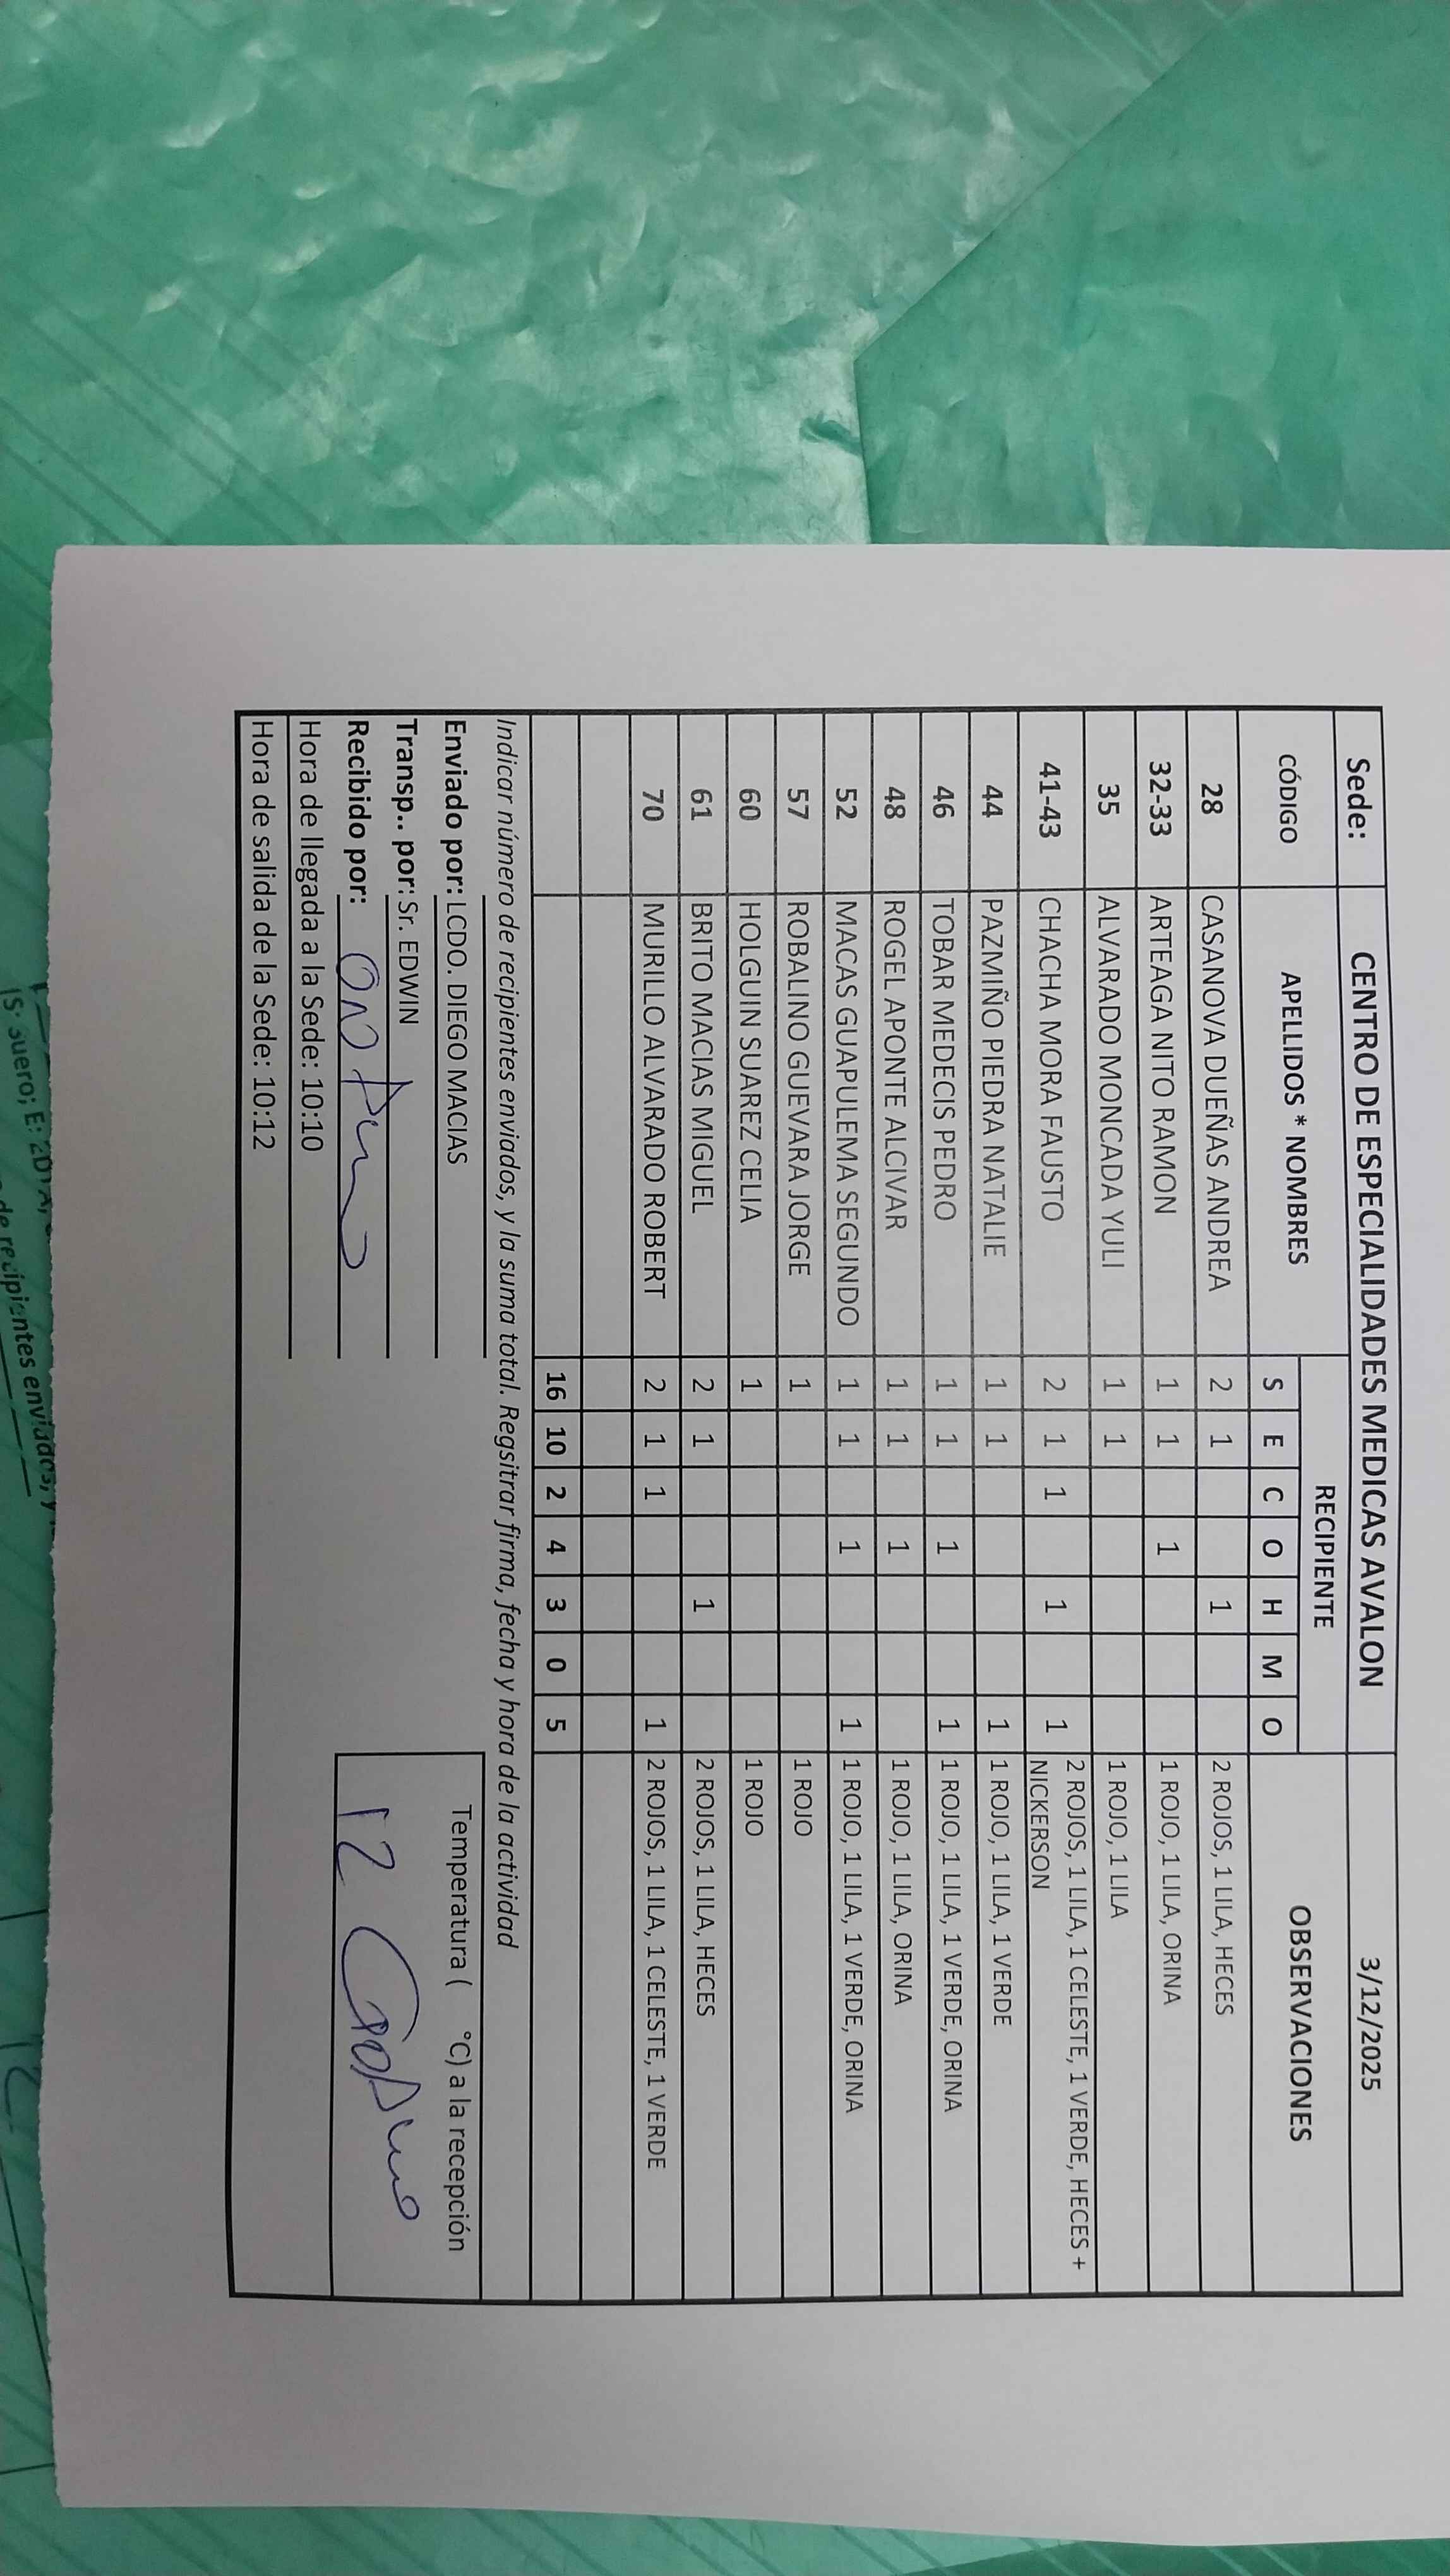 Sede: CENTRO DE ESPECIALIDADES MEDICAS AVALON 3/12/2025
CÓDIGO APELLIDOS * NOMBRES RECIPIENTE OBSERVACIONES
S E C O H M O
28 CASANOVA DUEÑAS ANDREA 2 1 1 2 ROJOS, 1 LILA, HECES
32-33 ARTEAGA NITO RAMON 1 1 1 1 ROJO, 1 LILA, ORINA
35 ALVARADO MONCADA YULI 1 1 1 ROJO, 1 LILA
41-43 CHACHA MORA FAUSTO 2 1 1 1 1 2 ROJOS, 1 LILA, 1 CELESTE, 1 VERDE, HECES +
NICKERSON
44 PAZMIÑO PIEDRA NATALIE 1 1 1 1 ROJO, 1 LILA, 1 VERDE
46 TOBAR MEDECIS PEDRO 1 1 1 1 1 ROJO, 1 LILA, 1 VERDE, ORINA
48 ROGEL APONTE ALCIVAR 1 1 1 1 ROJO, 1 LILA, ORINA
52 MACAS GUAPULEMA SEGUNDO 1 1 1 1 1 ROJO, 1 LILA, 1 VERDE, ORINA
57 ROBALINO GUEVARA JORGE 1 1 ROJO
60 HOLGUIN SUAREZ CELIA 1 1 ROJO
61 BRITO MACIAS MIGUEL 2 1 1 2 ROJOS, 1 LILA, HECES
70 MURILLO ALVARADO ROBERT 2 1 1 1 2 ROJOS, 1 LILA, 1 CELESTE, 1 VERDE
16 10 2 4 3 0 5
Indicar número de recipientes enviados, y la suma total. Regsitrar firma, fecha y hora de la actividad
Enviado por: LCDO. DIEGO MACIAS
Temperatura ( °C) a la recepción
Transp.. por: Sr. EDWIN
Recibido por:
12
Hora de llegada a la Sede: 10:10
Hora de salida de la Sede: 10:12
S: suero; E: EDTA;
de recipientes enviados, y